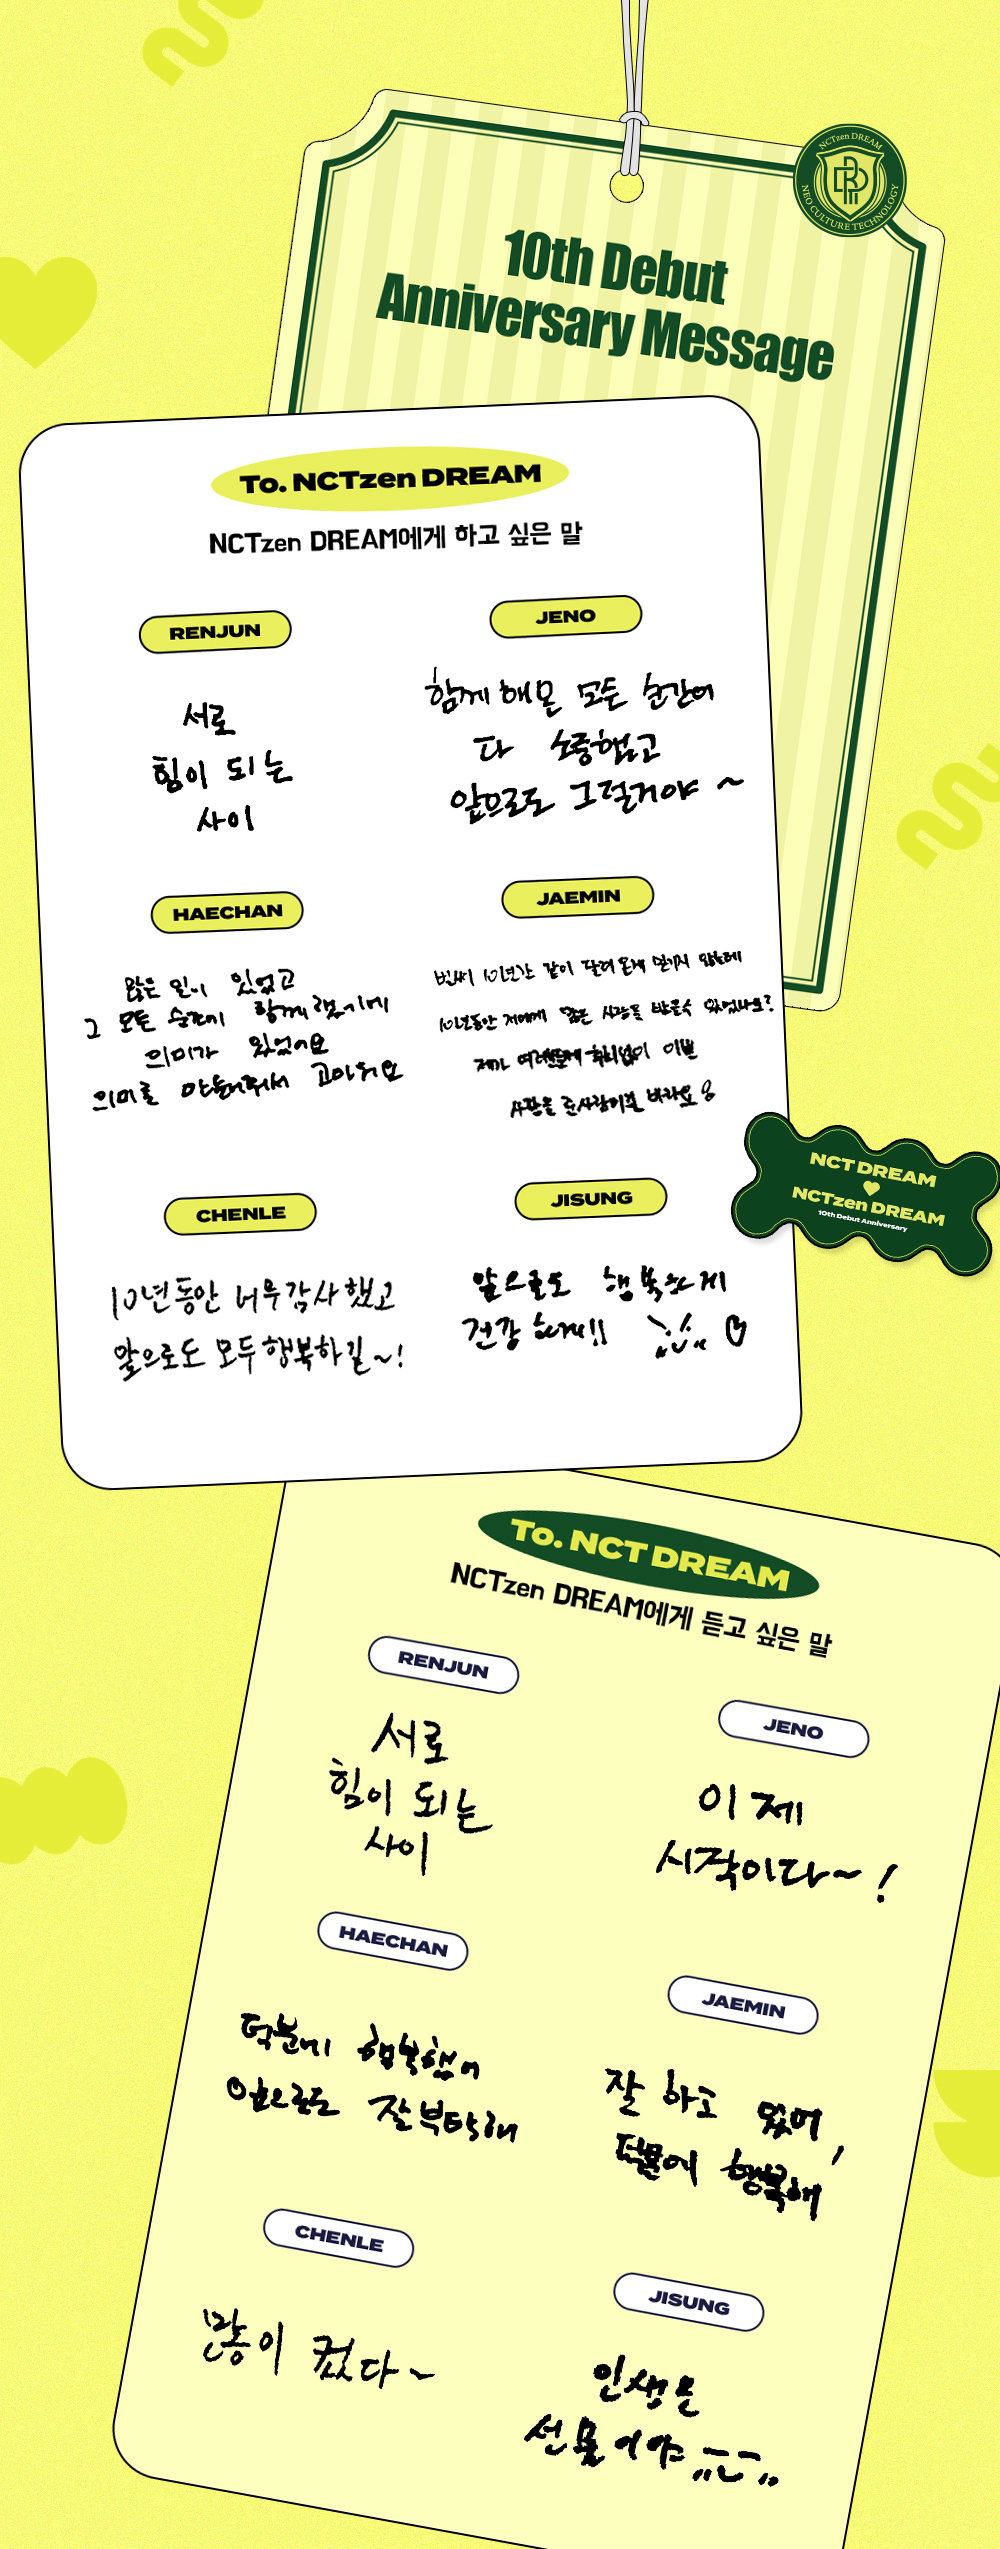 NCTzen DREAM
NEO CULTURE TECHNOLOGY
10th Debut
Anniversary Message
To. NCTzen DREAM
NCTzen DREAM에게 하고 싶은 말
RENJUN
서로
힘이 되는
사이
JENO
함께 해온 모든 순간이
다 소중했고
앞으로도 그럴거야 ~
HAECHAN
많은 일이 있었고
그 모든 순간이 함께했기에
의미가 있었어요
의미를 만들어줘서 고마워요
JAEMIN
벌써 10년간 같이 달려 온게 믿기지 않는데
10년동안 저에게 많은 사랑을 받을수 있었나요?
제가 여러분들께 후회없이 이쁜
사랑을 준사람이길 바라요
CHENLE
10년동안 너무 감사했고
앞으로도 모두 행복하길~!
JISUNG
앞으로도 행복하게
건강하게!!
NCT DREAM
NCTzen DREAM
10th Debut Anniversary
To. NCT DREAM
NCTzen DREAM에게 듣고 싶은 말
RENJUN
서로
힘이 되는
사이
JENO
이제
시작이다~!
HAECHAN
덕분에 행복했어
앞으로도 잘 부탁해
JAEMIN
잘 하고 있어,
덕분에 행복해
CHENLE
많이 컸다~
JISUNG
인생은
선물이야